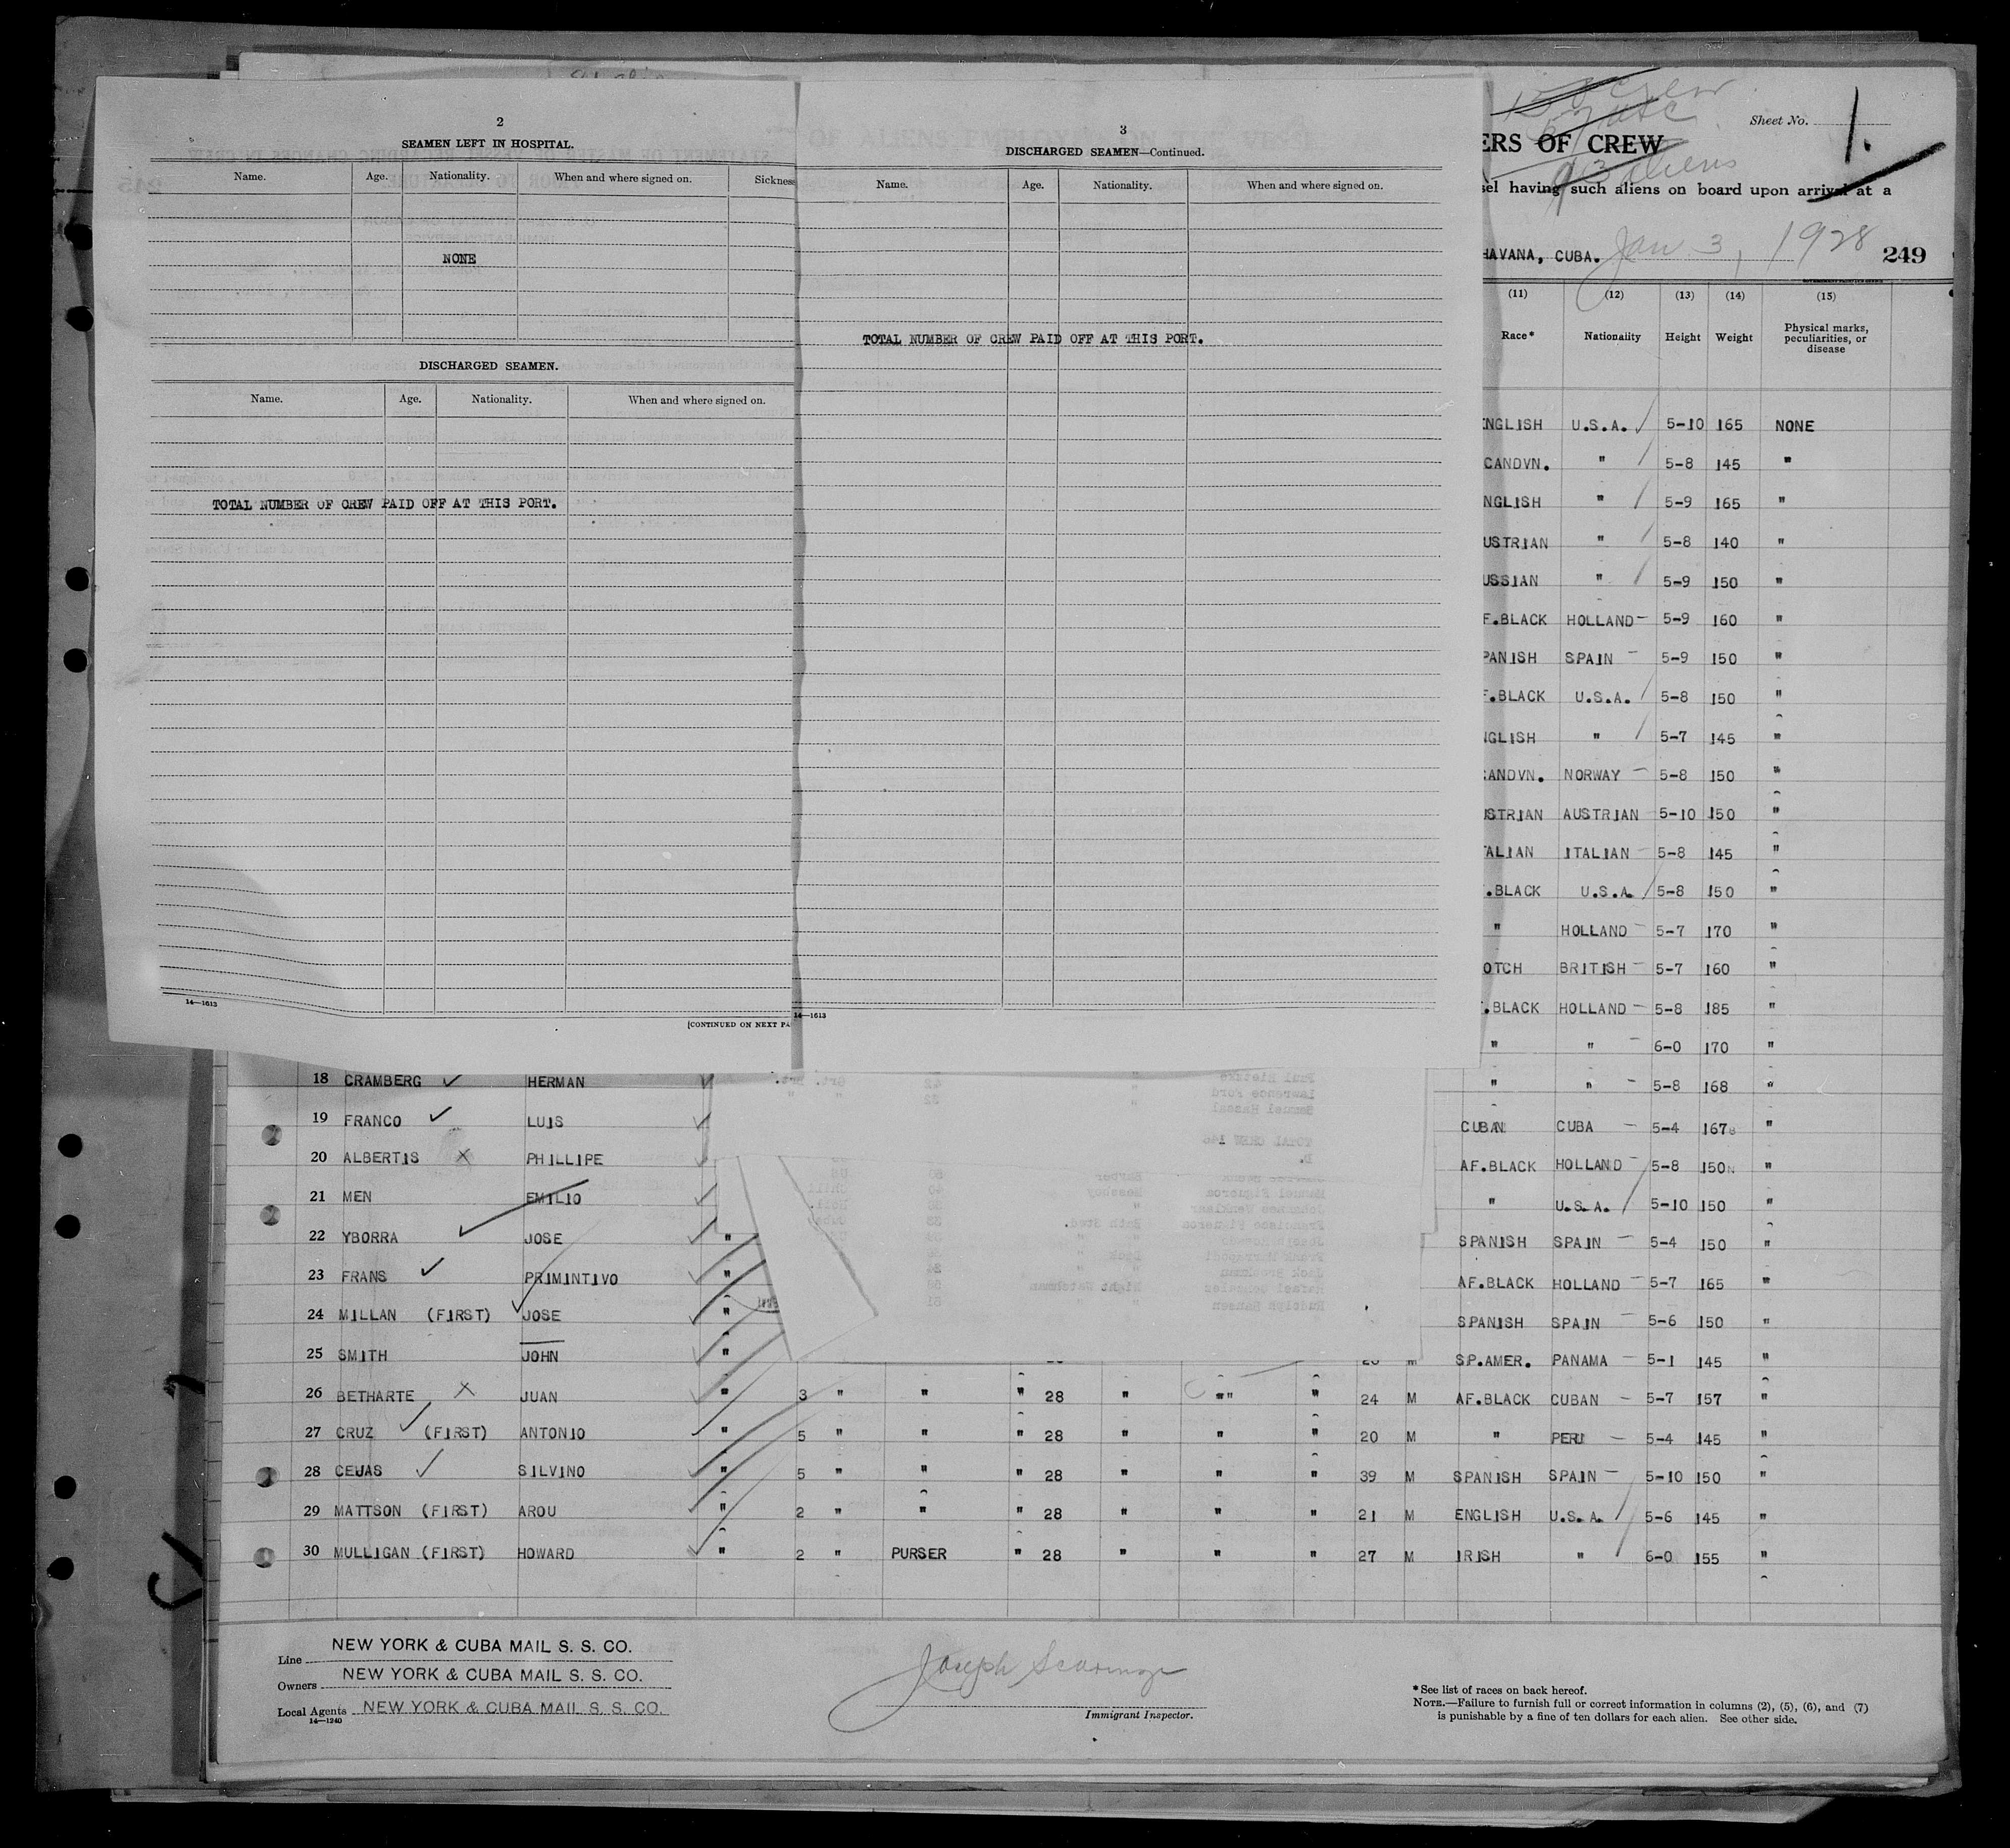 2
SEAMEN LEFT IN HOSPITAL.
Name. Age. Nationality. When and where signed on. Sickness
NONE
DISCHARGED SEAMEN.
Name. Age. Nationality. When and where signed on.
TOTAL NUMBER OF CREW PAID OFF AT THIS PORT.
14—1613
[CONTINUED ON NEXT PA
3
DISCHARGED SEAMEN—Continued.
Name. Age. Nationality. When and where signed on.
TOTAL NUMBER OF CREW PAID OFF AT THIS PORT.
14—1613
Sheet No. 1.
ERS OF CREW
93 aliens
sel having such aliens on board upon arrival at a
HAVANA, CUBA. Jan 3, 1928 249
(11) (12) (13) (14) (15)
Race* Nationality Height Weight Physical marks, peculiarities, or disease
ENGLISH U.S.A. 5-10 165 NONE
CANDVN. " 5-8 145 "
NGLISH " 5-9 165 "
USTRIAN " 5-8 140 "
USSIAN " 5-9 150 "
F.BLACK HOLLAND 5-9 160 "
PANISH SPAIN 5-9 150 "
F.BLACK U.S.A. 5-8 150 "
NGLISH " 5-7 145 "
CANDVN. NORWAY 5-8 150 "
USTRIAN AUSTRIAN 5-10 150 "
TALIAN ITALIAN 5-8 145 "
.BLACK U.S.A. 5-8 150 "
" HOLLAND 5-7 170 "
OTCH BRITISH 5-7 160 "
.BLACK HOLLAND 5-8 185 "
" " 6-0 170 "
18 CRAMBERG HERMAN " " 5-8 168 "
19 FRANCO LUIS CUBAN CUBA 5-4 167 "
20 ALBERTIS PHILLIPE AF.BLACK HOLLAND 5-8 150 "
21 MEN EMILIO " U.S.A. 5-10 150 "
22 YBORRA JOSE " SPANISH SPAIN 5-4 150 "
23 FRANS PRIMINTIVO " AF.BLACK HOLLAND 5-7 165 "
24 MILLAN (FIRST) JOSE " SPANISH SPAIN 5-6 150 "
25 SMITH JOHN " SP.AMER. PANAMA 5-1 145 "
26 BETHARTE JUAN " 3 " " " 28 " "" " 24 M AF.BLACK CUBAN 5-7 157 "
27 CRUZ (FIRST) ANTONIO " 5 " " " 28 " " " 20 M " PERU 5-4 145 "
28 CEUAS SILVINO " 5 " " " 28 " " " 39 M SPANISH SPAIN 5-10 150 "
29 MATTSON (FIRST) AROU " 2 " " " 28 " " " 21 M ENGLISH U.S.A. 5-6 145 "
30 MULLIGAN (FIRST) HOWARD " 2 " PURSER " 28 " " " 27 M IRISH " 6-0 155 "
Line NEW YORK & CUBA MAIL S. S. CO.
Owners NEW YORK & CUBA MAIL S. S. CO.
Local Agents NEW YORK & CUBA MAIL S. S. CO.
14—1240
Joseph
Immigrant Inspector.
*See list of races on back hereof.
NOTE.—Failure to furnish full or correct information in columns (2), (5), (6), and (7)
is punishable by a fine of ten dollars for each alien. See other side.